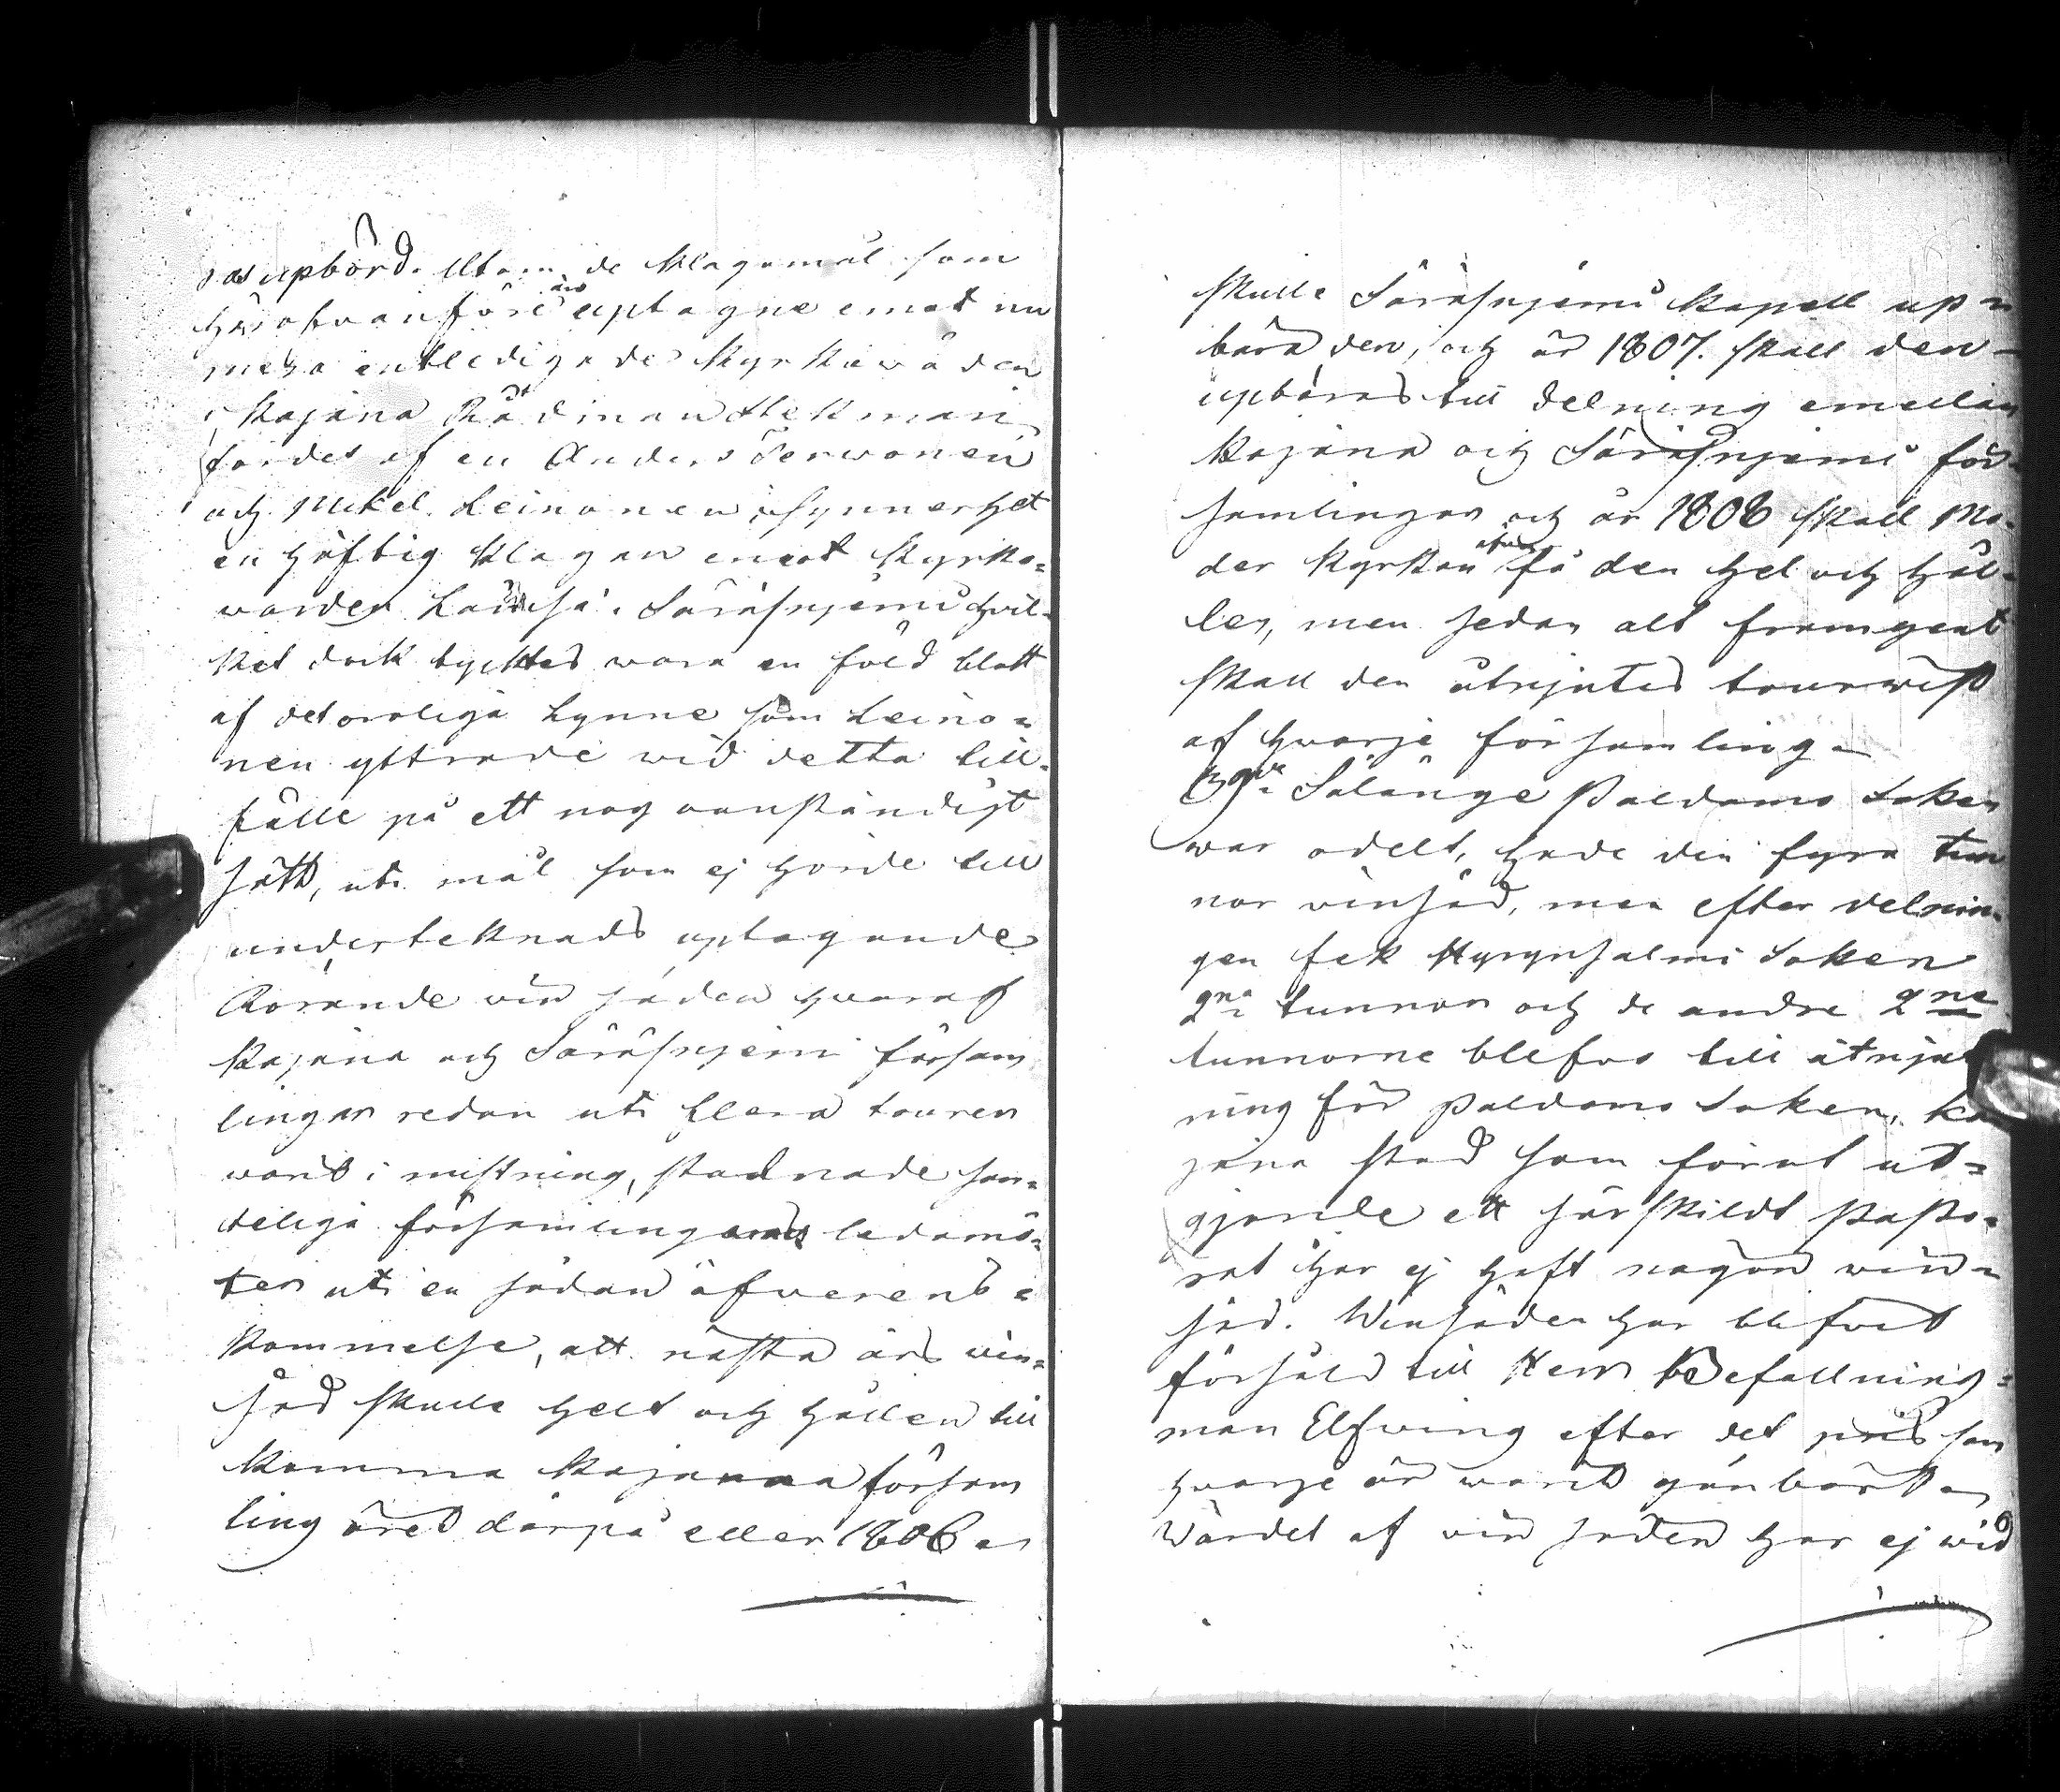 as upbörd. Utom de klagomål som
härofvanföre äro uptagne emot nu
mera entledigade Kyrkiewärden
i Kajana Rådman Hekman
fördes af en Anders Terwonen
och Mikel Leinonen i synnerhet
en häftig klagan emot Kyrko-
warden i Säräsnjemi hvil-
ket dock tycktes wara en föld blott
af det oroliga Lynne som Leino-
nen yttrade wid detta till-
fälle på ett nog oanständigt
sätt, uti mål som ej hörde till
underteknads uptagande
Rörande vin säden hwaraf
Kajana och Säräsnjemi försam
lingar redan uti flera touren
warit i mistning, stadnade sam-
teliga församlingarnas ledamö-
ter uti en sådan öfverens-
kommelse, att nästa års vin-
säd skulle helt och hållen till
komma Kajana försam
ling året därpå eller 1806
skulle Säräsnjemi kapell up-
bära den, och år 1807. skall den
upbäras till delning emellan
Kajana och Säräsnjemi för-
samlingar och år 1808 skall Mo-
der kyrkan få den hel och hål-
len, men sedan alt framgent
skall den åtnjutas tourwist
af hwarje församling
Sålänge Paldamo Soken
war odelt, hade den fyra tun
nor vinsäd, men efter delnin-
gen fek Hyrynsalmi Soken
2ne tunnor och de andre 2ne
tunnorne blefvo till åtnjut
ning för Paldamo Soken, Ka
jana stad som förut ut-
gjorde ett särskildt Pasto-
rat har ej haft någon win-
säd. Winsäden har blifvit
försåld till Herr Befallning-
man Elfving efter det pris som
hwarje år warit gånbart
Wärdet af vin säden har ej wid